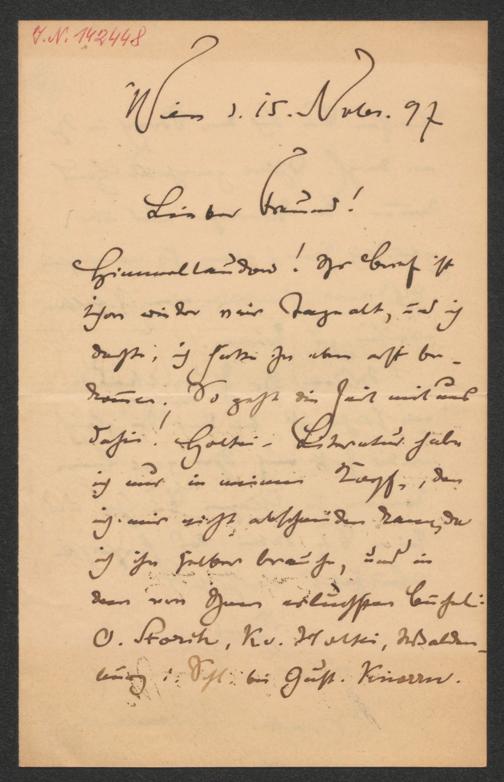 J.N. 142448
Wien d. 15. Novbr. 97
Lieber Freund!
Himmellaudon! Ihr Brief ist
schon wieder neun Tage alt, und ich
dachte, ich hätte ihn eben erst be-
kommen. So geht die Zeit mit uns
dahin! Holtei-Literatur habe
ich nur in meinem Kopf, den
ich mir nicht abschneiden kann, da
ich ihn selber brauche, und in
dem von Ihnen erluchsten Büchel:
O. Storch, K. v. Holtei, Walden-
burg i. Schl. bei Gust. Knorrn.